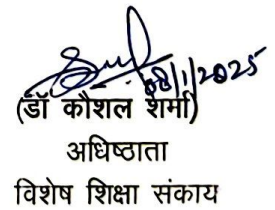 08/1/2025
(डॉ कौशल शर्मा)
अधिष्ठाता
विशेष शिक्षा संकाय